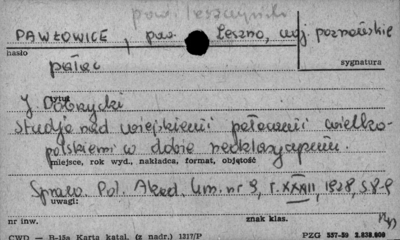 pow. leszczyński
PAWŁOWICE, pow. Leszno, woj. poznańskie
hasło
pałac
sygnatura
J Dobrzycki
Studja nad wiejskiemi pałacami wielko-
polskiemi w dobie neoklasycyzmu.
miejsce, rok wyd., nakładca, format, objętość
Spraw. Pol. Akad. Um. nr 9, r. XXXII, 1928, s. 8-9
uwagi:
nr inw.
znak klas.
CWD — B-15a Karta katal. (z nadr.) 1217/P
PZG 557-50 2.838.000